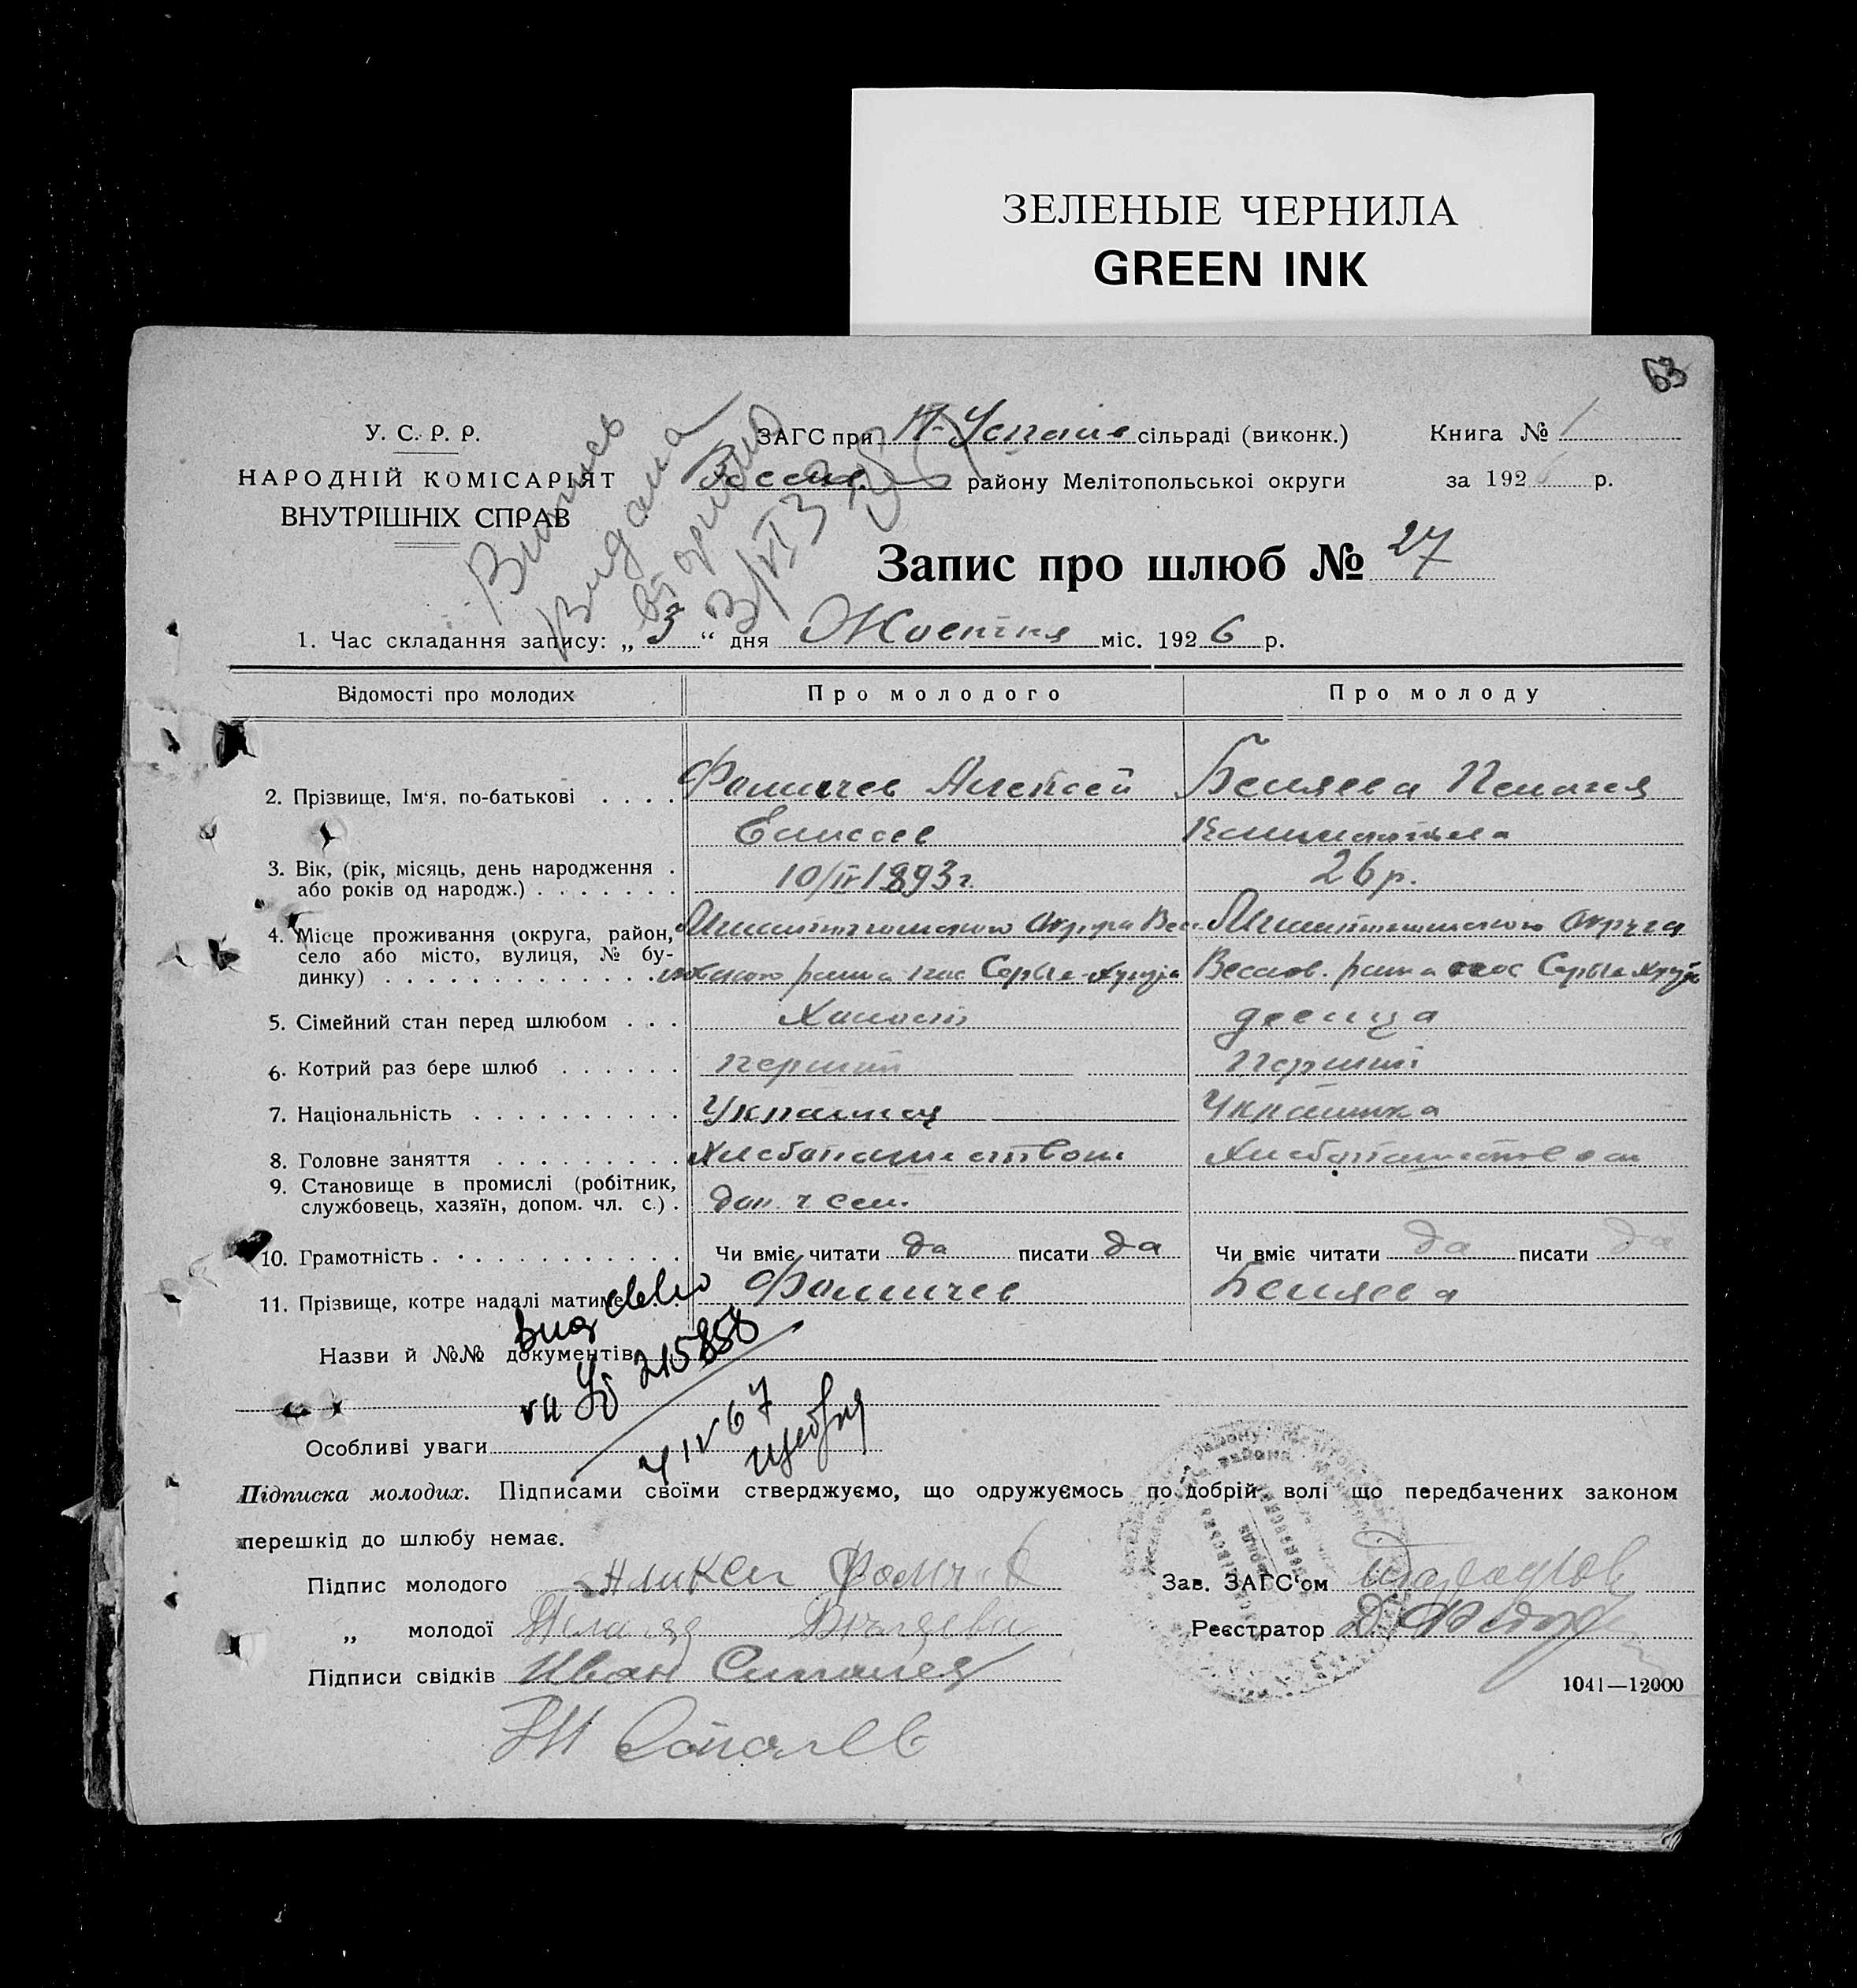 ЗЕЛЕНЫЕ ЧЕРНИЛА
GREEN INK
63
У. С. Р. Р.
НАРОДНІЙ КОМІСАРІЯТ
ВНУТРІШНІХ СПРАВ
ЗАГС при Н-Успенів сільраді (виконк.)
Книга № 1
Весел. району Мелітопольської округи
за 1926 р.
Выпись
видана
3/VI 3
Запис про шлюб № 27
1. Час складання запису: „ 3 “ дня Жовтня міс. 1926 р.
Відомості про молодих
Про молодого
Про молоду
2. Прізвище, Ім‘я, по-батькові . . . . Фомичев Алексей Беляева Пелагея
Елисеев
3. Вік, (рік, місяць, день народження . 10/IV 1893 г. 26 р.
або років од народж.) . . . . . . .
4. Місце проживання (округа, район, Мелитопольского Округа Весе- Мелитопольского Округа
село або місто, вулиця, № бу-
динку) . . . . . . . . . . . . . ловского района пос Серые-Хутора Веселов. района пос Серые Хутора
5. Сімейний стан перед шлюбом . . . Холост девица
6. Котрий раз бере шлюб . . . . . . перший перший
7. Національність . . . . . . . . . . Украинец Украинка
8. Головне заняття . . . . . . . . . Хлебопашеством Хлебопашеством
9. Становище в промислі (робітник,
службовець, хазяїн, допом. чл. с.) . доп. ч сем.
10. Грамотність . . . . . . . . . . . . Чи вміє читати да писати да Чи вміє читати да писати да
11. Прізвище, котре надалі матиме . . . Фомичев Беляева
Назви й №№ документів
215858
4 IV 67
Особливі уваги
Підписка молодих. Підписами своїми стверджуємо, що одружуємось по добрій волі що передбачених законом
перешкід до шлюбу немає.
Підпис молодого Аликсеи Фомичев
Зав. ЗАГС‘ом
„ молодої Пелагея Беляева
Реєстратор
Підписи свідків Иван
1041—12000